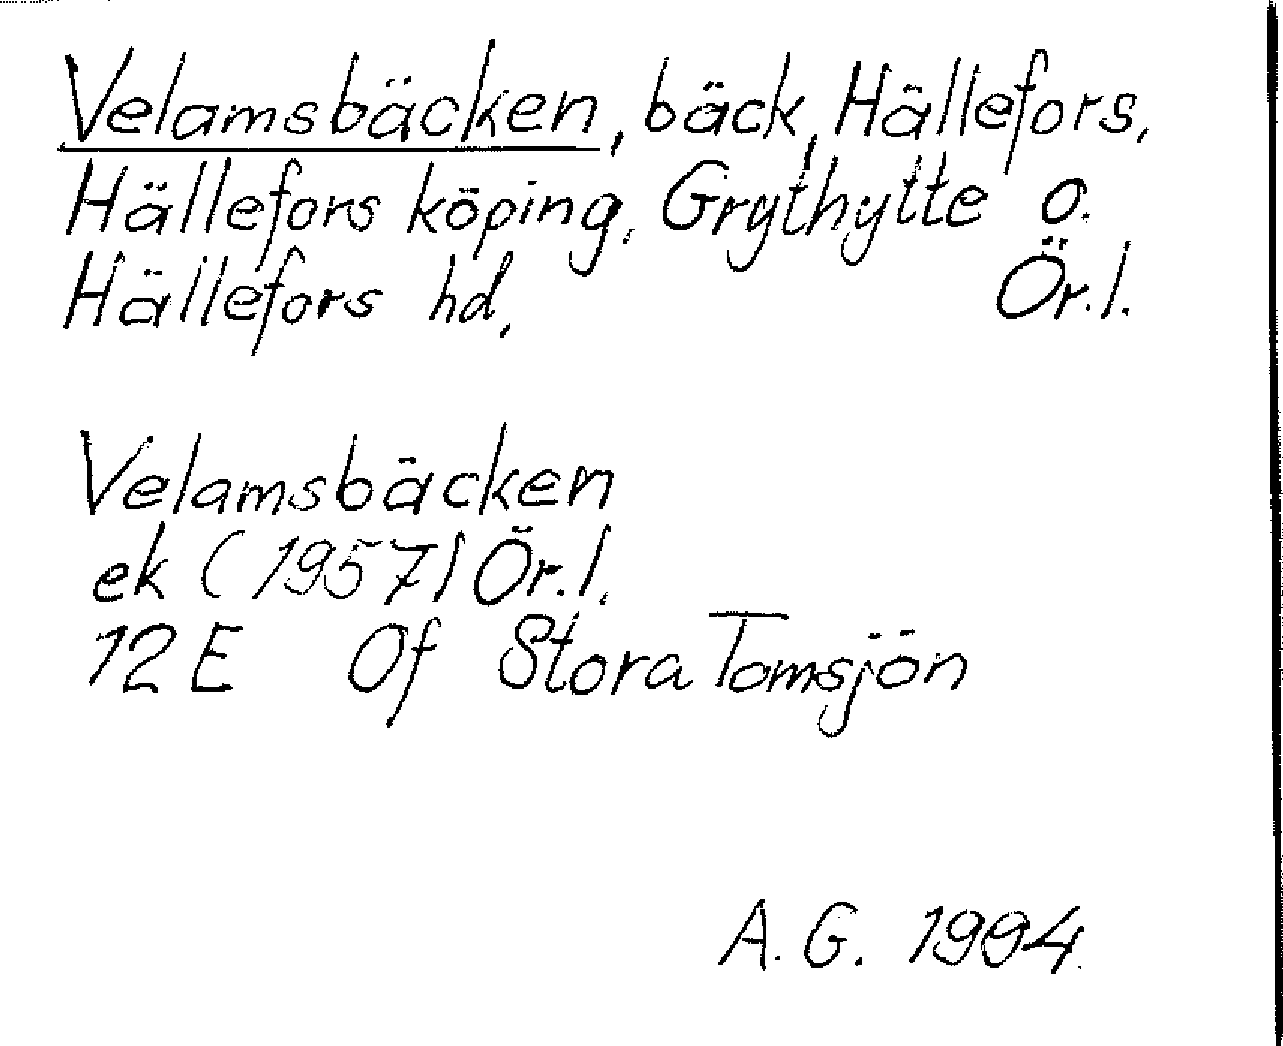 Velamsbäcken, bäck, Hällefors,
Hällefors köping, Grythytte o.
Hällefors hd, Ör.l.
Velamsbäcken
ek (1957) Ör.l.
12 E Of Stora Tomsjön
A. G. 1994.